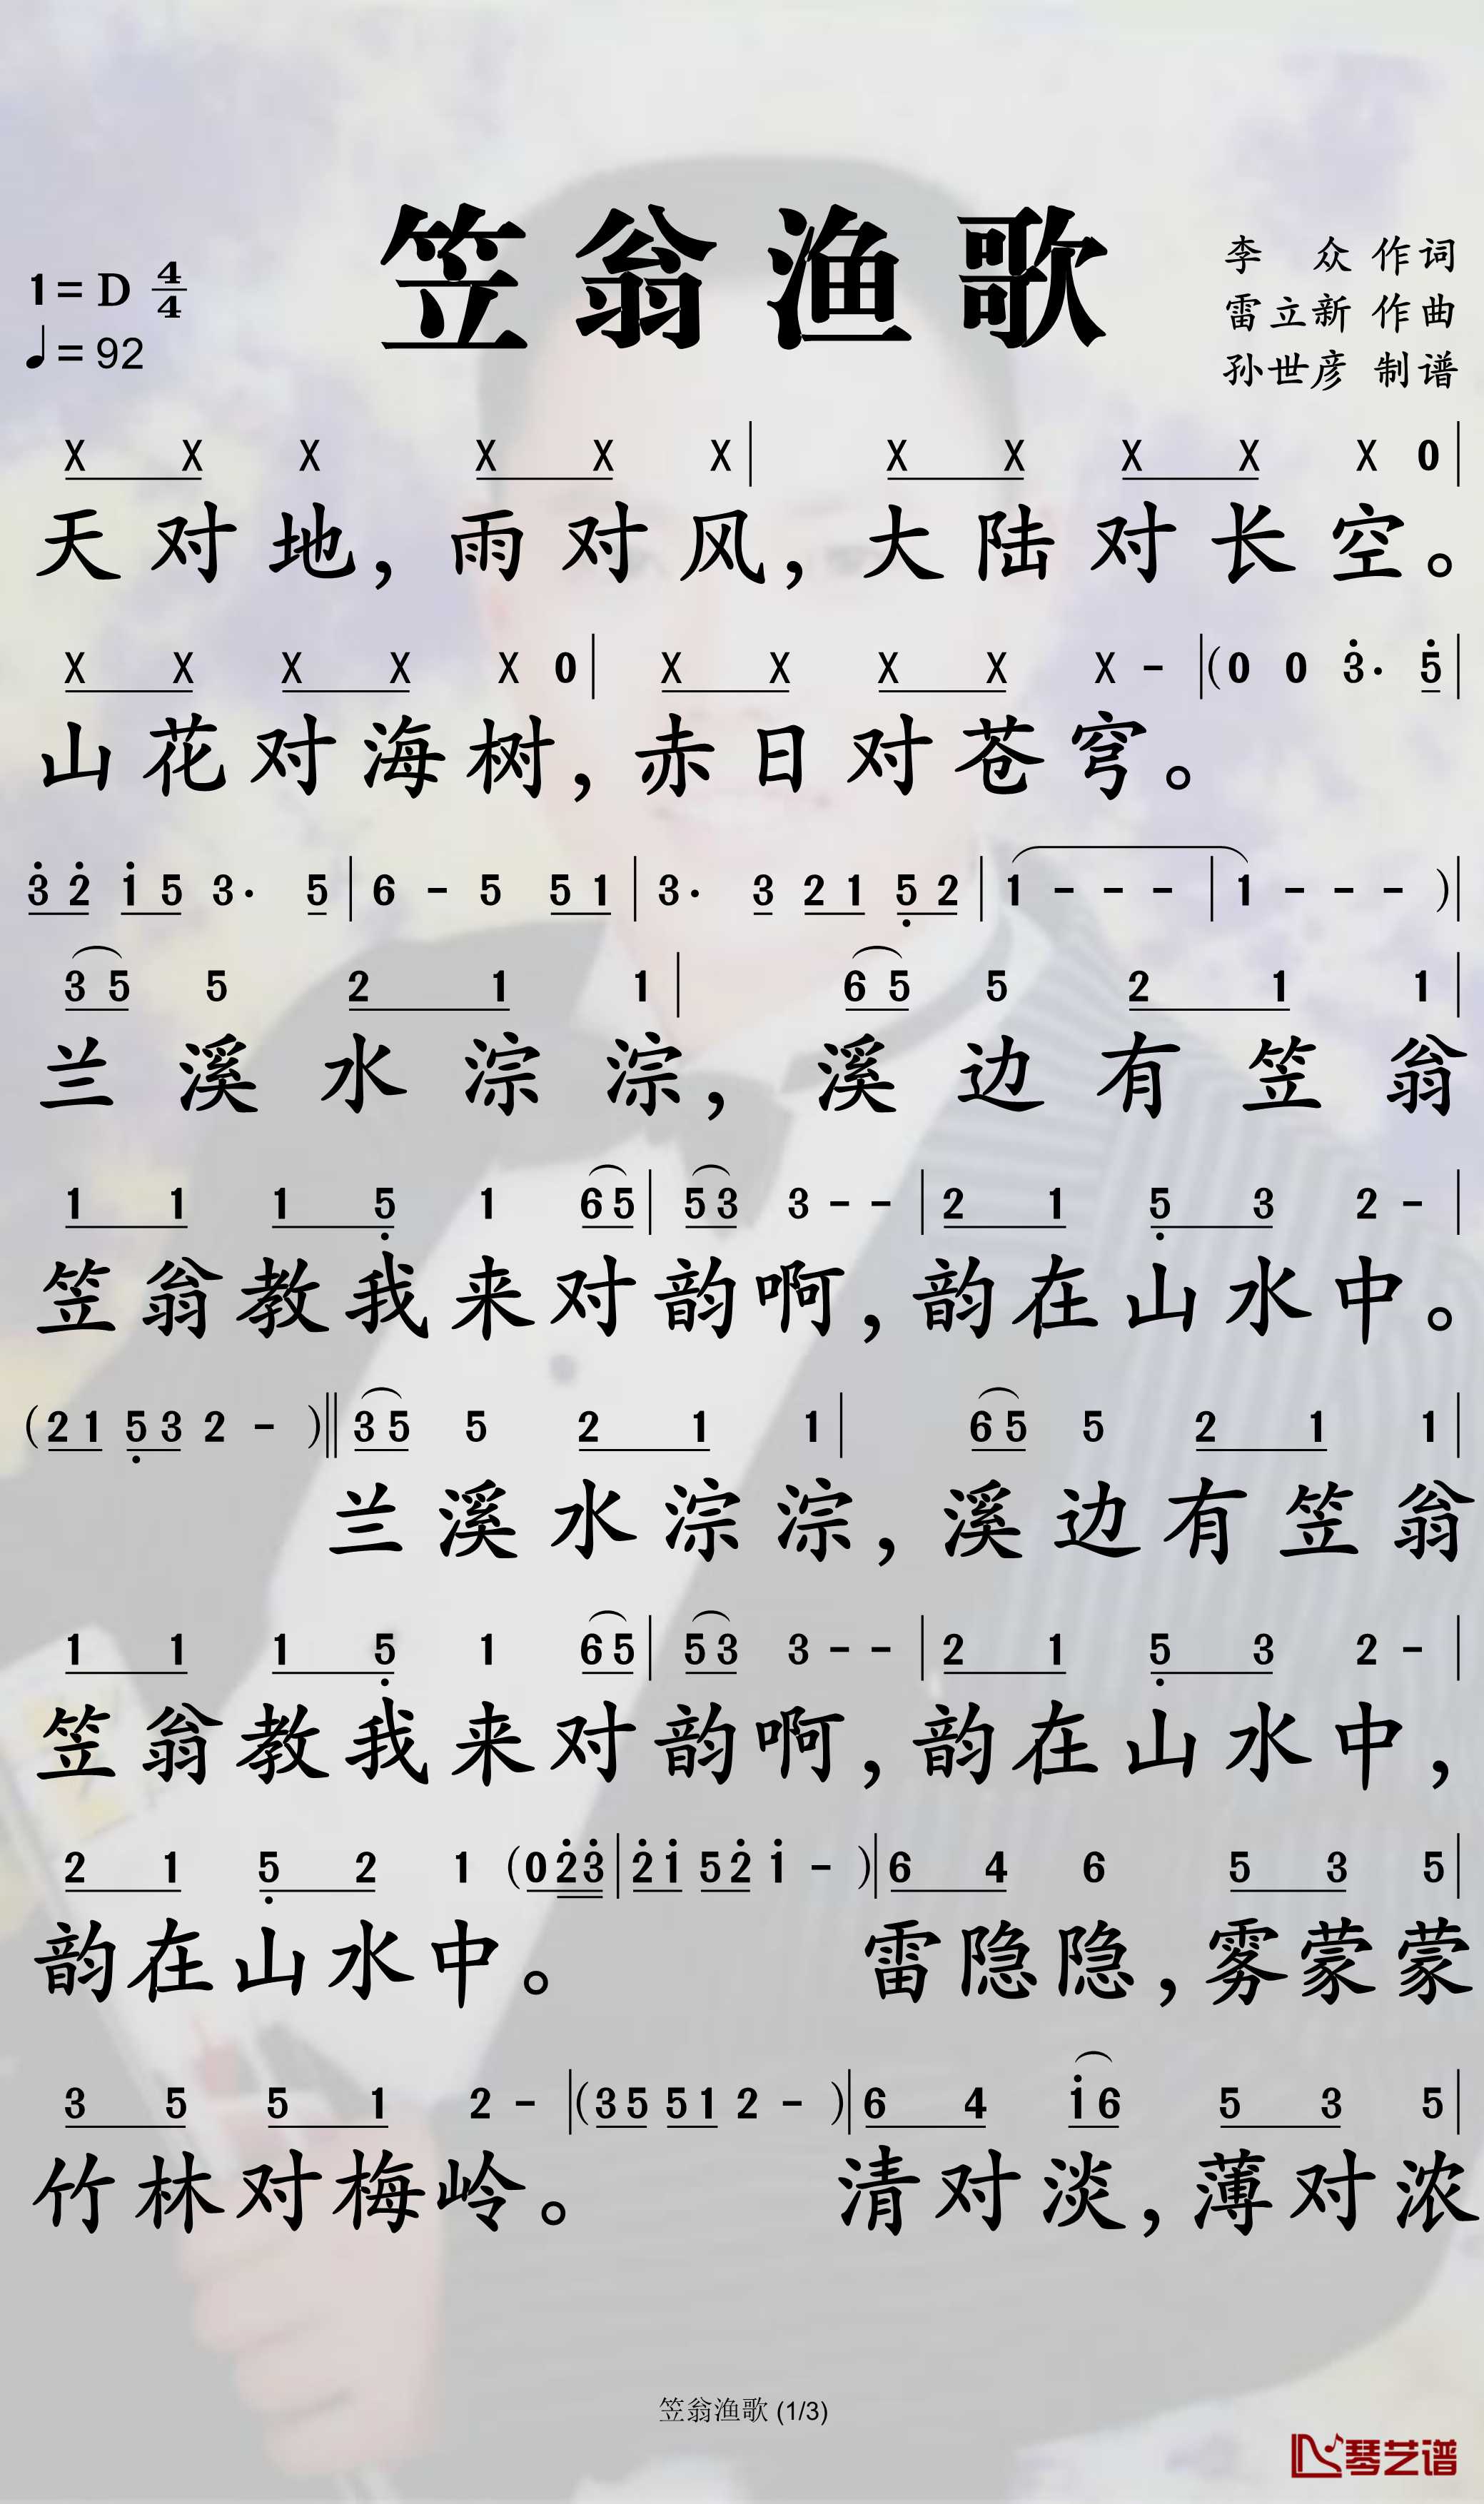 笠翁渔歌
1=D 4/4
♩=92
李 众 作词
雷立新 作曲
孙世彦 制谱
X X X X X X | X X X X X 0 |
天对地，雨对风，大陆对长空。
X X X X X 0 | X X X X X - | (0 0 3̇· 5̇ |
山花对海树，赤日对苍穹。
3̇ 2̇ 1̇ 5 3· 5 | 6 - 5 5 1 | 3· 3 2 1 5̣ 2 | 1 - - - | 1 - - - ) |
3 5 5 2 1 1 | 6 5 5 2 1 1 |
兰溪水淙淙，溪边有笠翁
1 1 1 5̣ 1 6 5 | 5 3 3 - - | 2 1 5̣ 3 2 - |
笠翁教我来对韵啊，韵在山水中。
(2 1 5̣ 3 2 - ) || 3 5 5 2 1 1 | 6 5 5 2 1 1 |
兰溪水淙淙，溪边有笠翁
1 1 1 5̣ 1 6 5 | 5 3 3 - - | 2 1 5̣ 3 2 - |
笠翁教我来对韵啊，韵在山水中，
2 1 5̣ 2 1 (0 2̇ 3̇ | 2̇ 1̇ 5 2̇ 1̇ - ) | 6 4 6 5 3 5 |
韵在山水中。 雷隐隐，雾蒙蒙
3 5 5 1 2 - | (3 5 5 1 2 - ) | 6 4 1̇ 6 5 3 5 |
竹林对梅岭。 清对淡，薄对浓
笠翁渔歌 (1/3)
琴艺谱